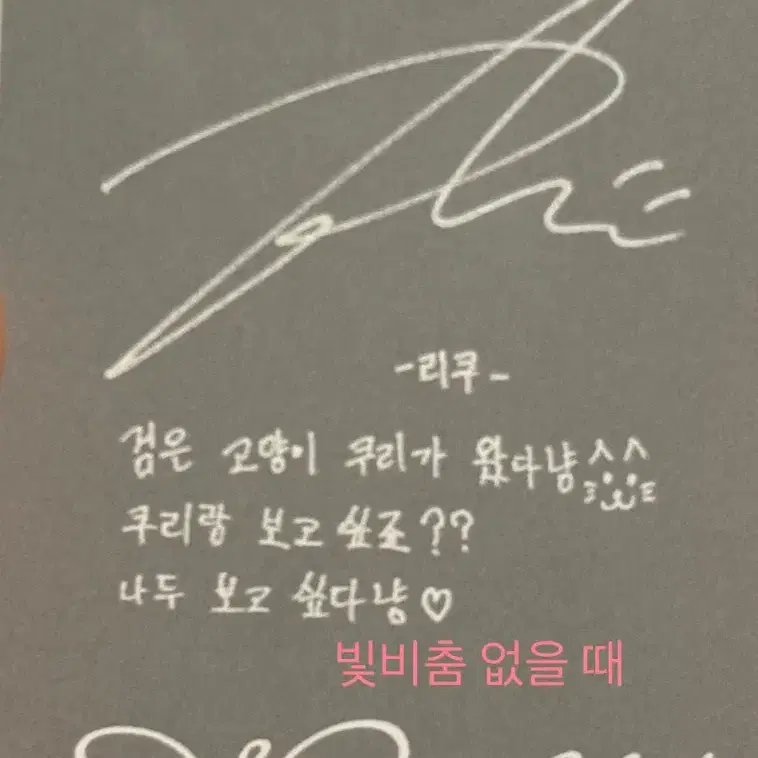 -리쿠-
검은 고양이 쿠리가 왔다냥
쿠리랑 보고 싶죠??
나두 보고 싶다냥♡
빛비춤 없을 때